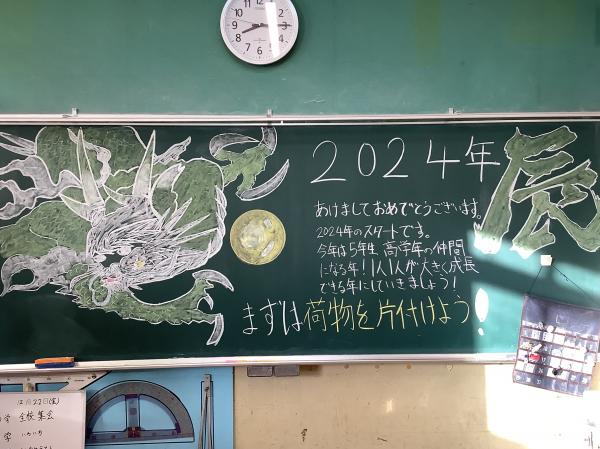 2024年
辰
あけましておめでとうございます。
2024年のスタートです。
今年は5年生 高学年の仲間
になる年！1人1人が大きく成長
できる年にしていきましょう！
まずは荷物を片付けよう！
12月22日(金)
全校集会